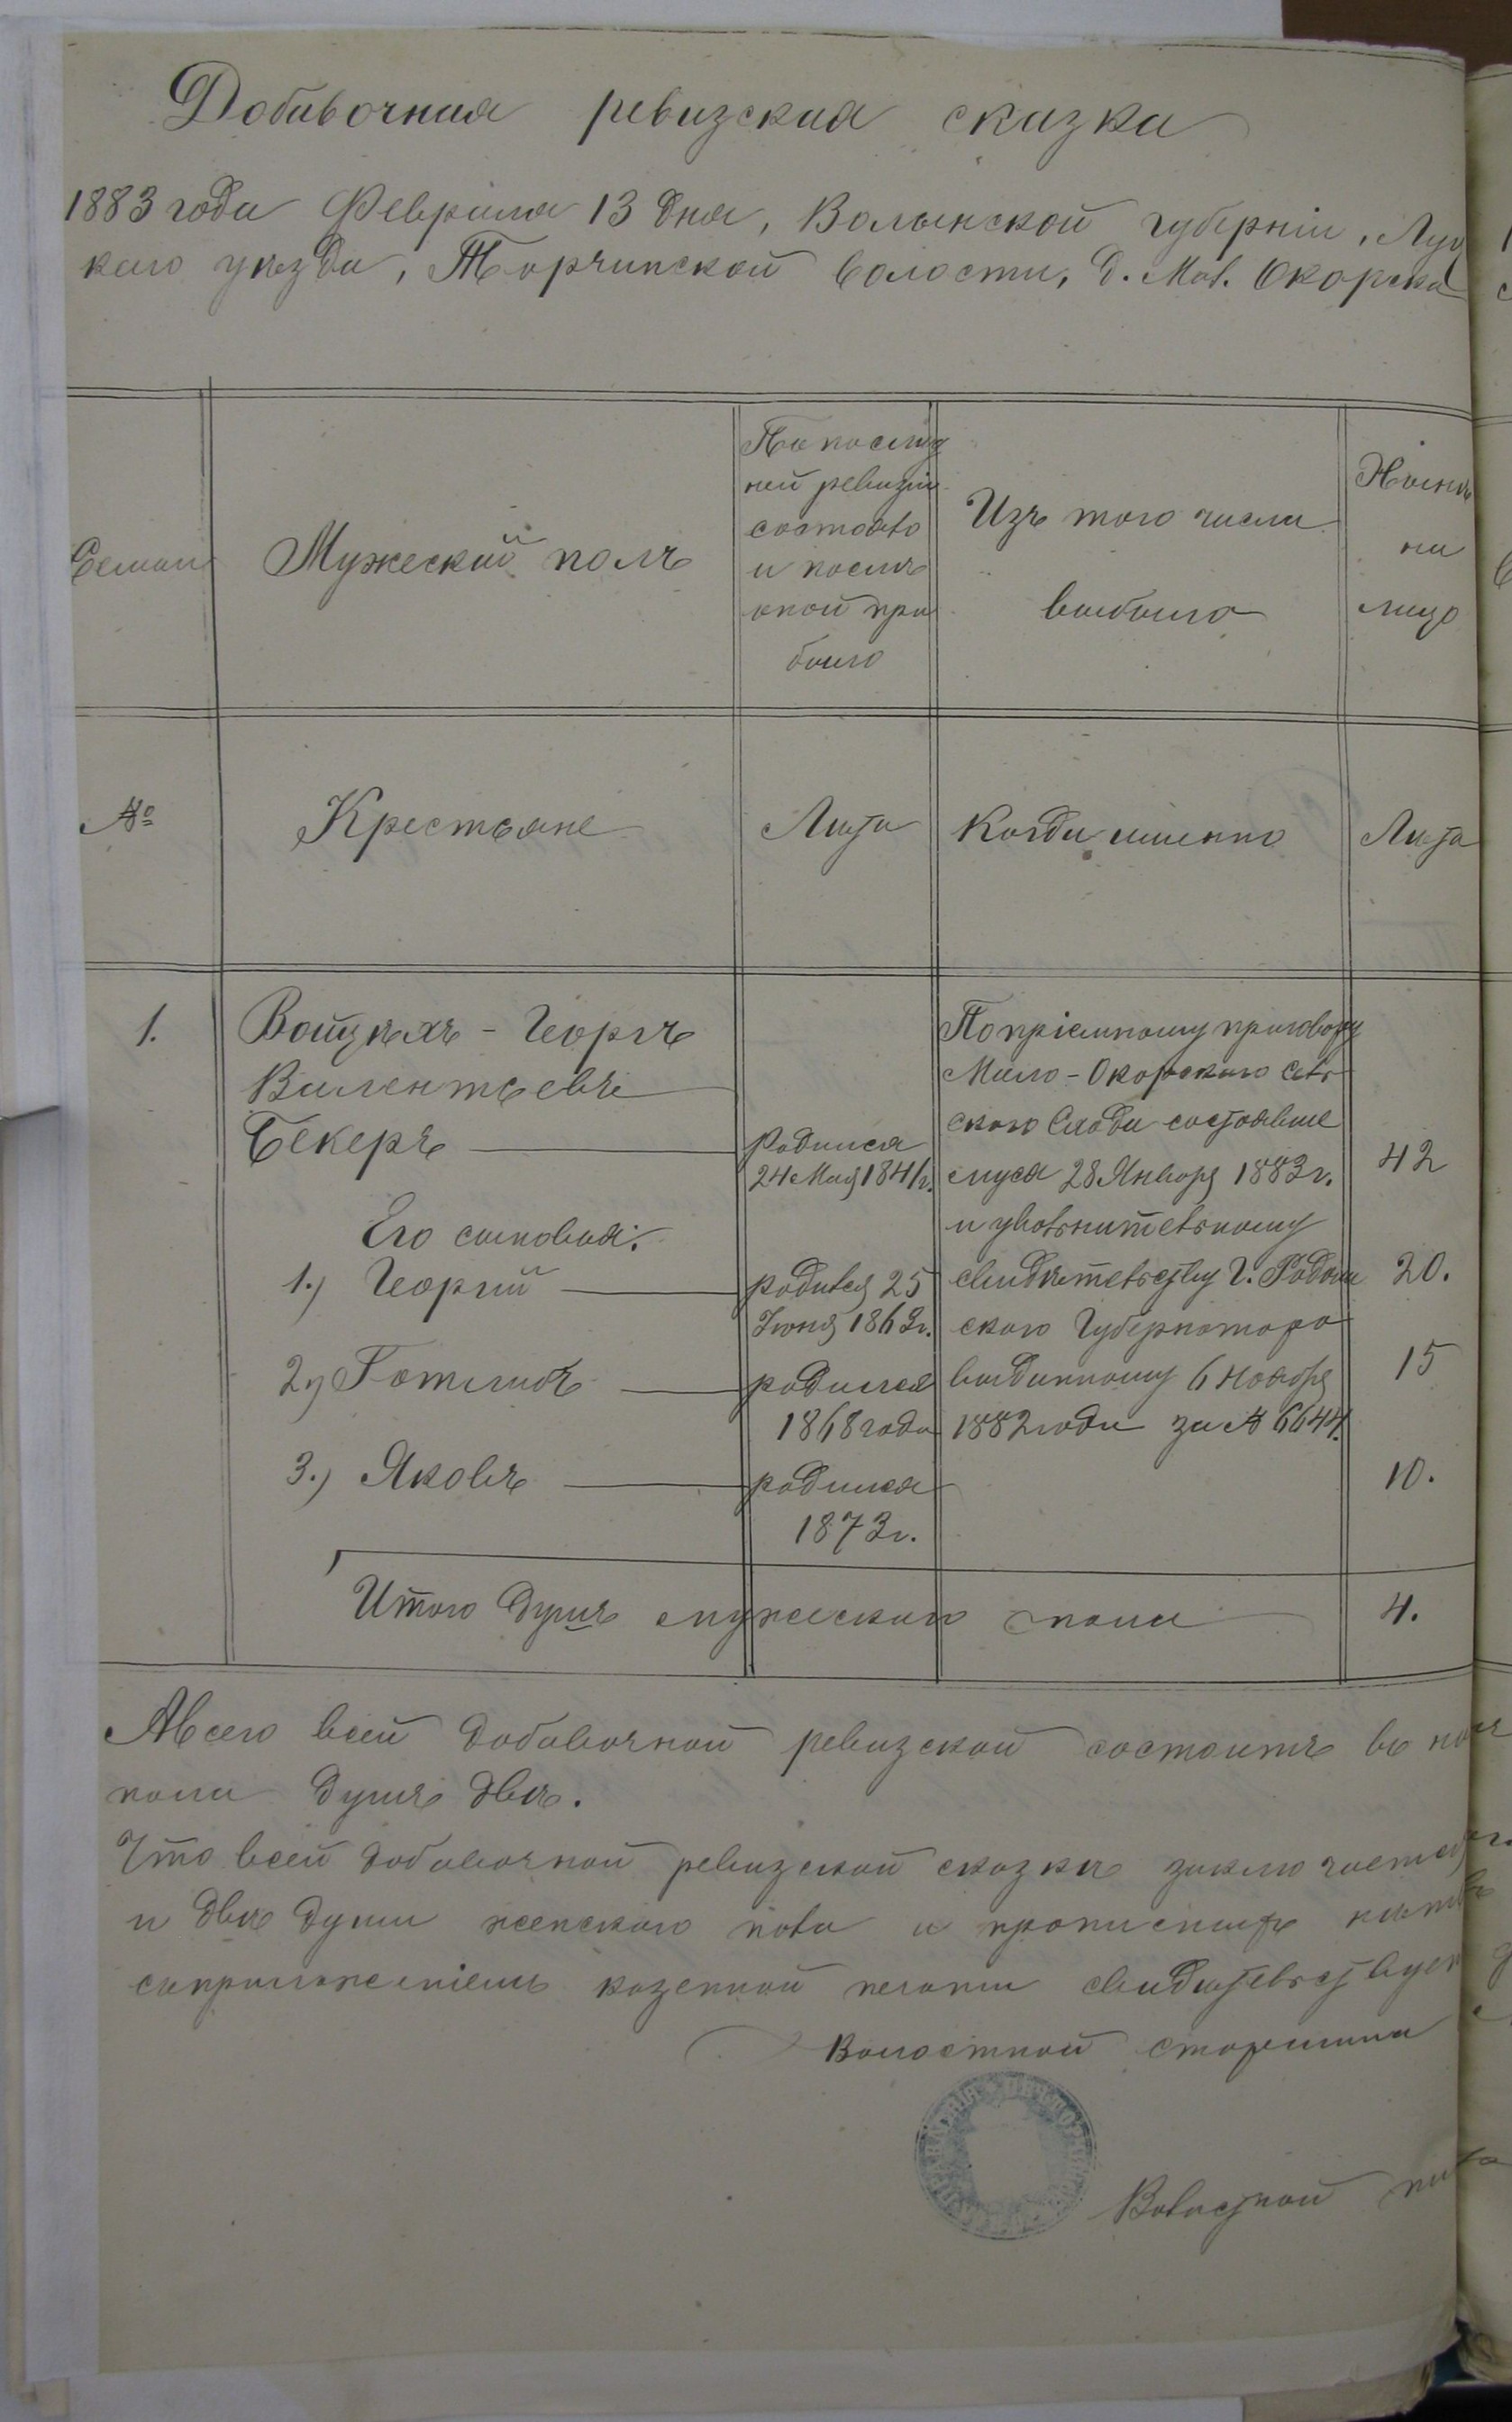 Добавочная ревизская сказка
1883 года Февраля 13 дня, Волынской губерніи, Луц
каго уѣзда, Торчинской волости, д. Мал. Окорска
Семьи
Мужеский полъ
По послѣд
ней ревизіи
состояло
и послѣ
оной при
было
Изъ того числа
выбыло
Нынѣ
на
лицо
№
Крестьяне
Лѣта
Когда именно
Лѣта
1.
Войцѣхъ - Георгъ
Валентьевъ
Бекеръ
Родился
24 Мая 1841 г.
По пріемному приговору
Мало - Окорскаго Сель
скаго Схода состоявше
муся 28 Января 1883 г.
и увольнительному
свидѣтельству Г. Радом
скаго Губернатора
выданному 6 Ноября
1882 года за № 6644.
42
Его сыновья:
1.) Георгий
родился 25
Іюня 1863 г.
20.
2) Готлибъ
родился
1868 года
15
3.) Яковъ
родился
1873 г.
10.
Итого душъ мужескаго пола
4.
А всего всей добавочной ревизской состоитъ въ
пола душъ двѣ.
Что всей добавочной ревизской сказкѣ заключается
и двѣ души женскаго пола и
съ приложеніемъ казенной печати свидѣтельствуем
Волостной старшина
Волостной